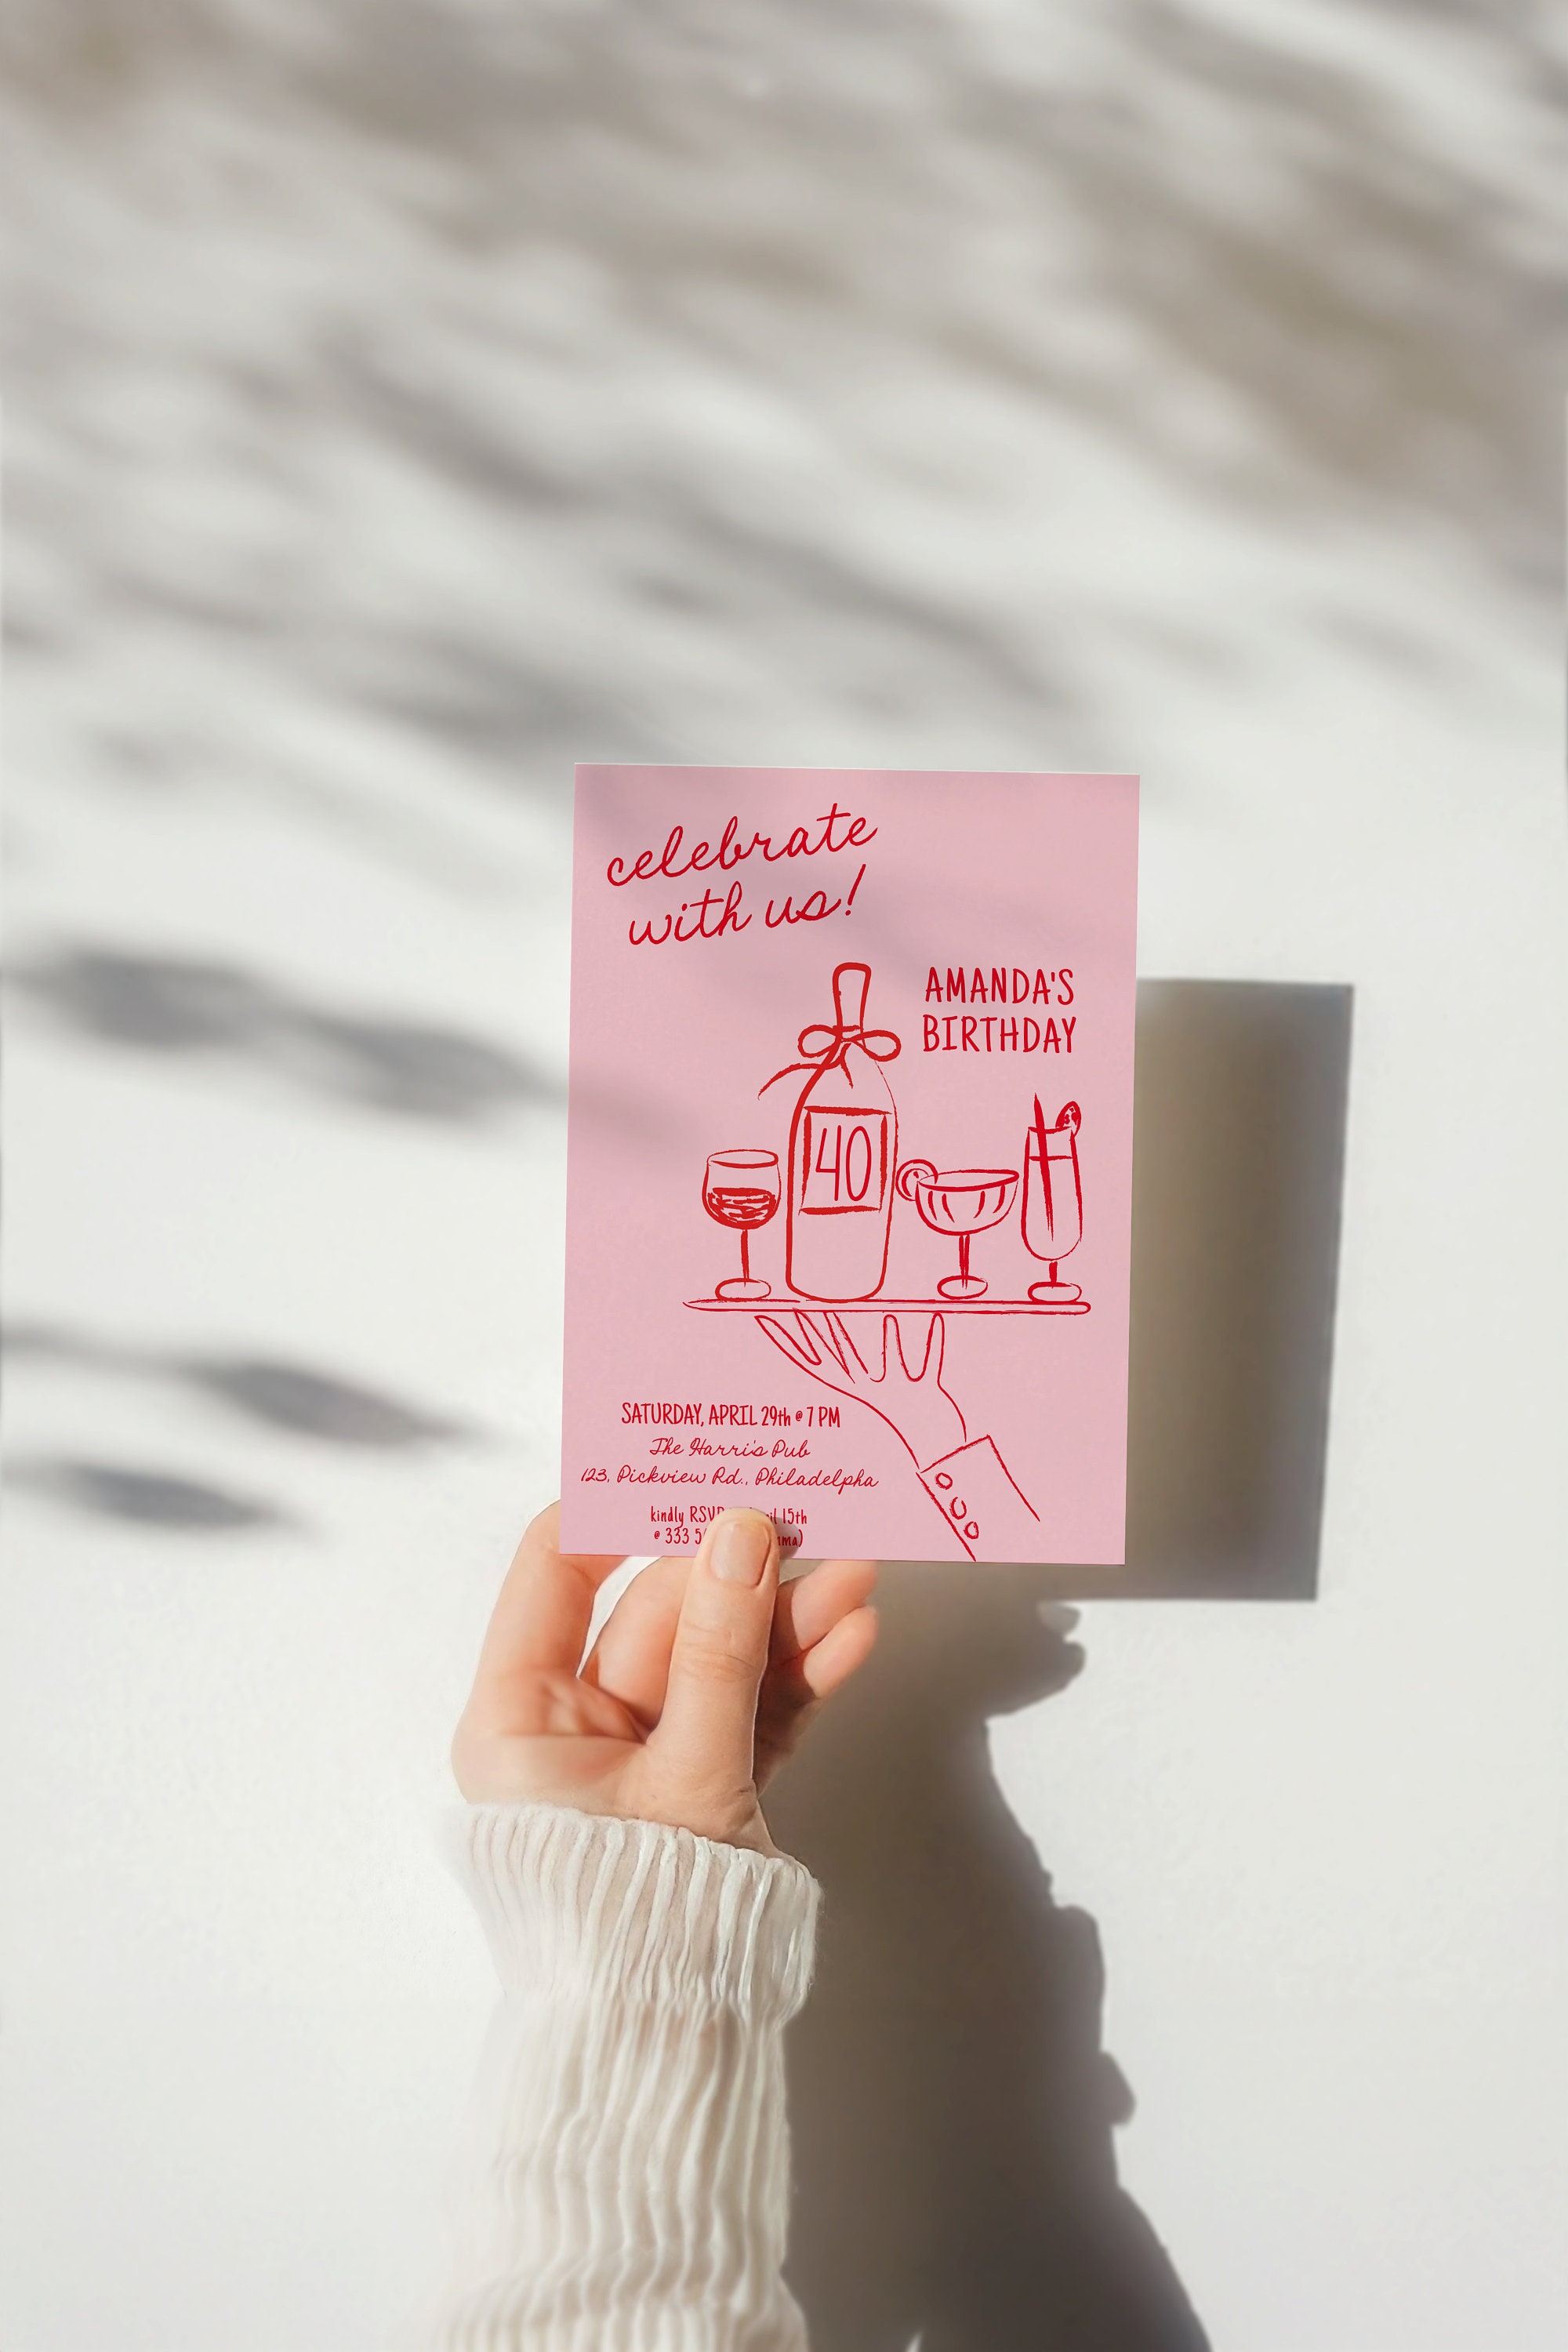 celebrate
with us!
AMANDA'S
BIRTHDAY
40
SATURDAY, APRIL 29th @ 7 PM
The Harri's Pub
123, Pickview Rd., Philadelpha
kindly 15th
@ 333